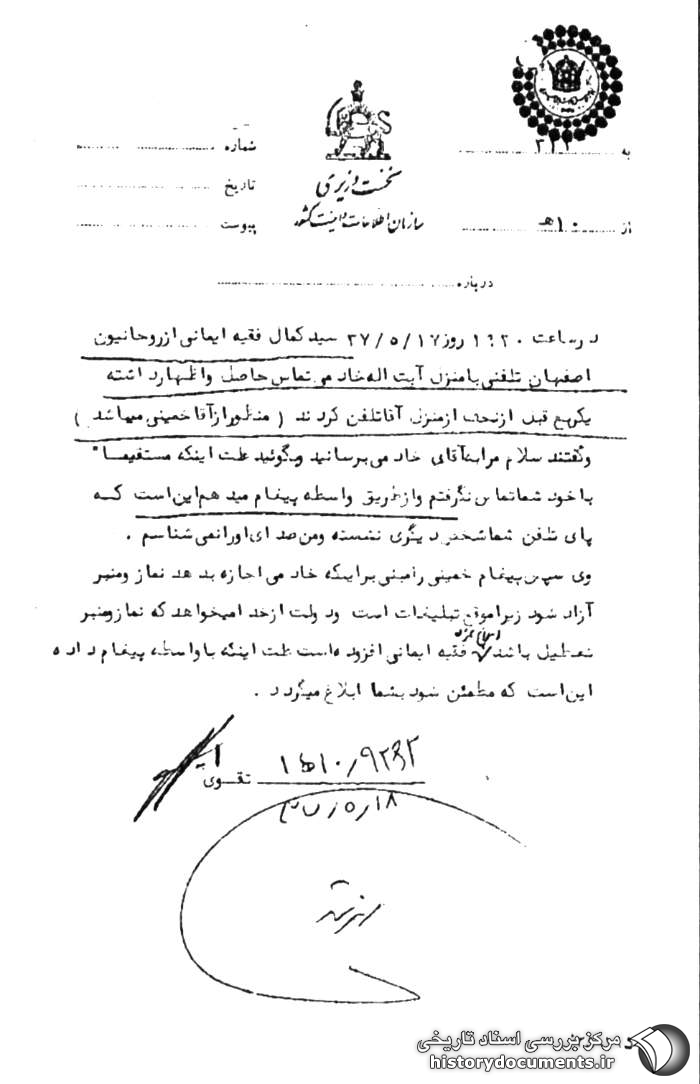 به ۳۲۲
از ۱۰هـ
نخست وزیری
سازمان اطلاعات و امنیت کشور
شماره
تاریخ
پیوست
درباره
در ساعت ۱۹۲۰ روز ۳۷/۵/۱۷ سید کمال فقیه ایمانی از روحانیون
اصفهان تلفنی با منزل آیت اله خادمی تماس حاصل و اظهار داشته
یکربع قبل از نجف از منزل آقا تلفن کردند ( منظور از آقا خمینی میباشد )
و گفتند سلام مرا به آقای خادمی برسانید و بگوئید علت اینکه مستقیما"
با خود شما تماس نگرفتم و از طریق واسطه پیغام میدهم این است که
پای تلفن شما شخص دیگری نشسته و من صدای او را نمی شناسم .
وی سپس پیغام خمینی را مبنی بر اینکه خادمی اجازه بدهد نماز و منبر
آزاد شود زیرا موقع تبلیغات است و دولت از خدا میخواهد که نماز و منبر
تعطیل باشد فقیه ایمانی افزوده است علت اینکه با واسطه پیغام داده
این است که مطمئن شود بشما ابلاغ میگردد .
تقوی
۳۷/۵/۱۸
مرکز بررسی اسناد تاریخی
historydocuments.ir